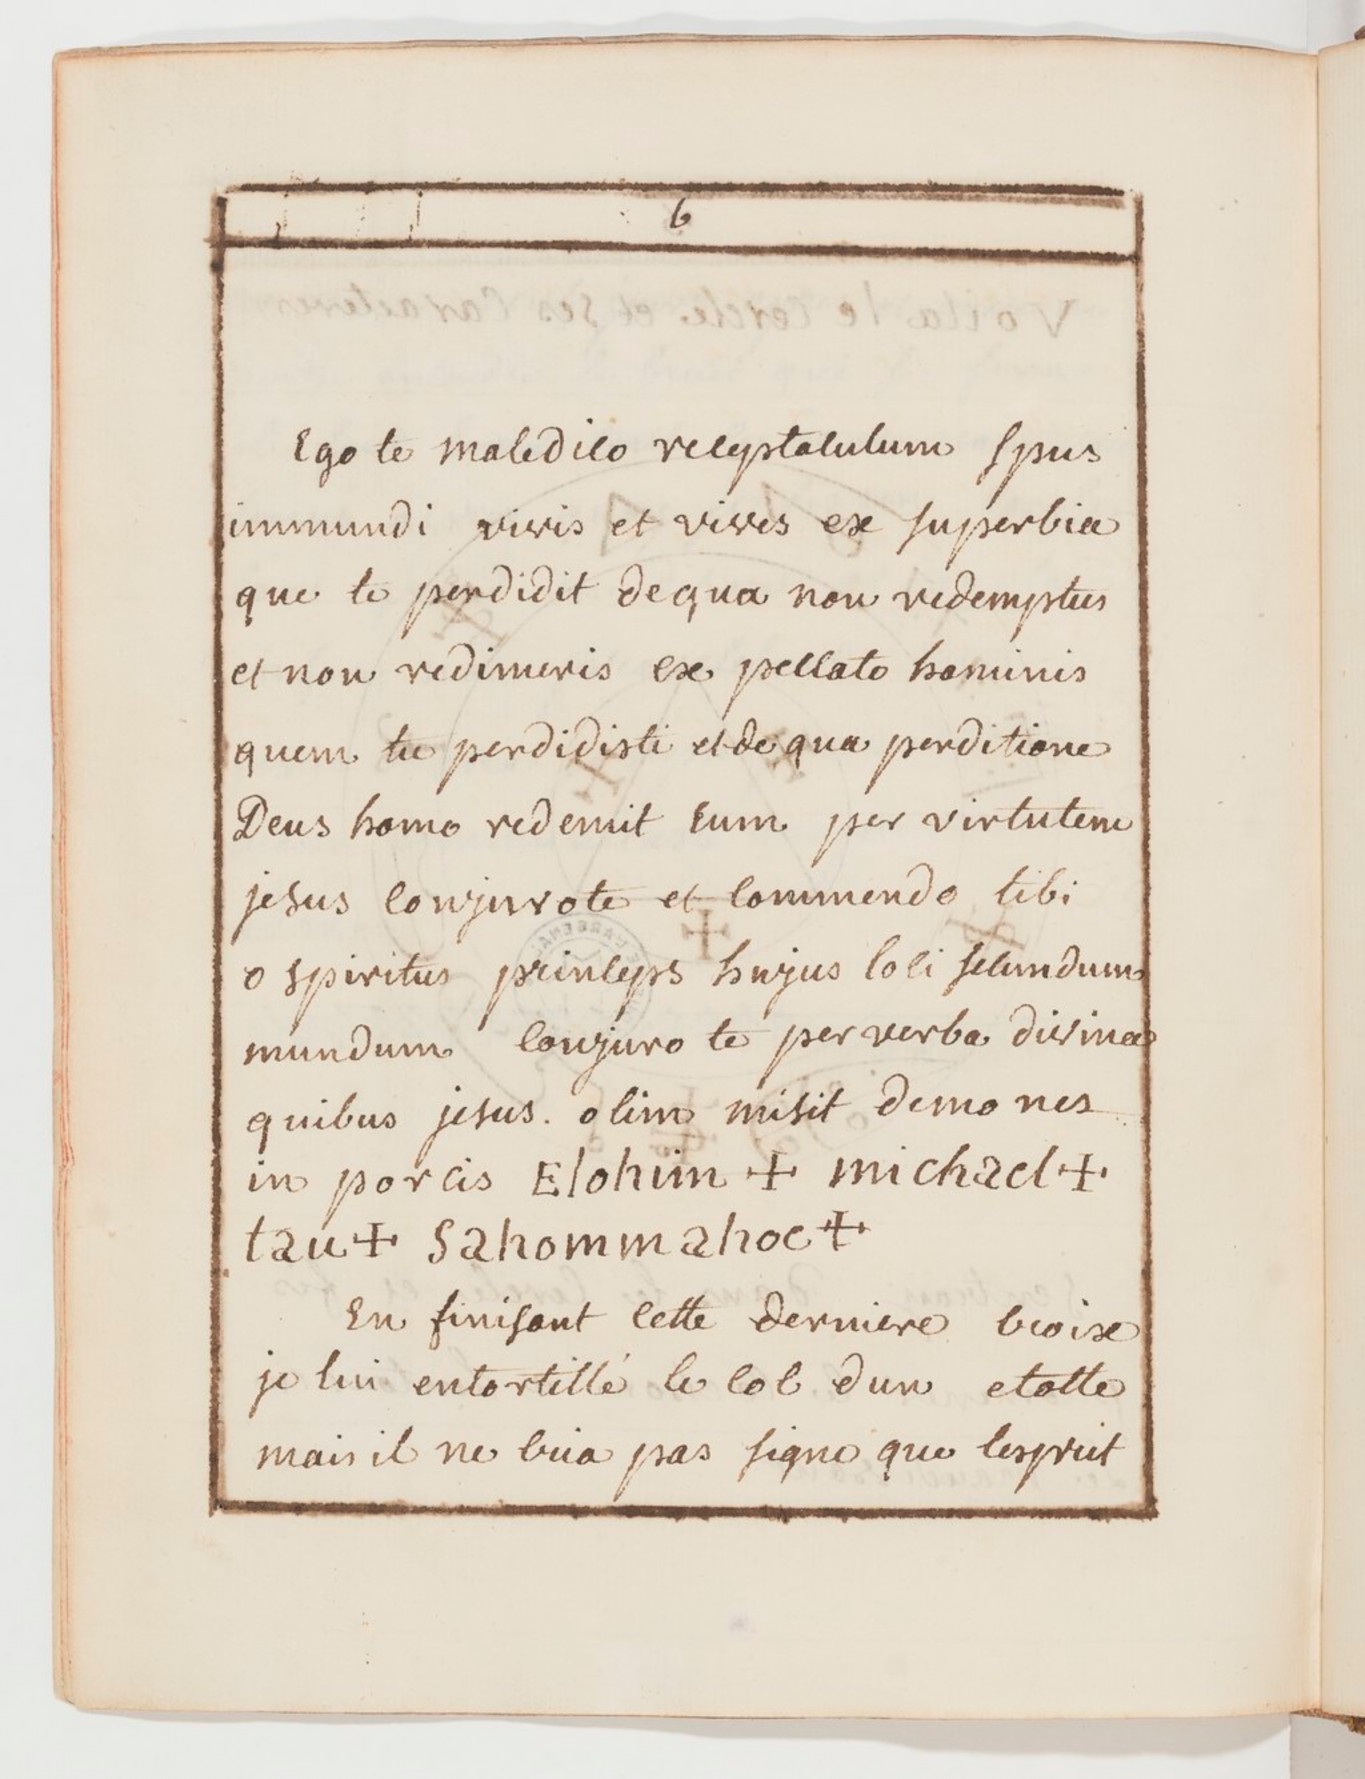 6
Ego te maledico receptaculum spus
immundi vivis et vives ex superbia
que te perdidit de qua non redemptus
et non redimeris ex peccato hominis
quem tu perdidisti et de qua perditione
Deus homo redemit eum per virtutem
jesus conjuro te et commendo tibi
o spiritus princeps hujus loci secundum
mundum conjuro te per verba divina
quibus jesus. olim misit demones
in porcis Elohim + michael +
tau + Sahommahoc +
En finisant cette derniere croix
je lui entortillé le col dun etolle
mais il ne cria pas signe que lesprit